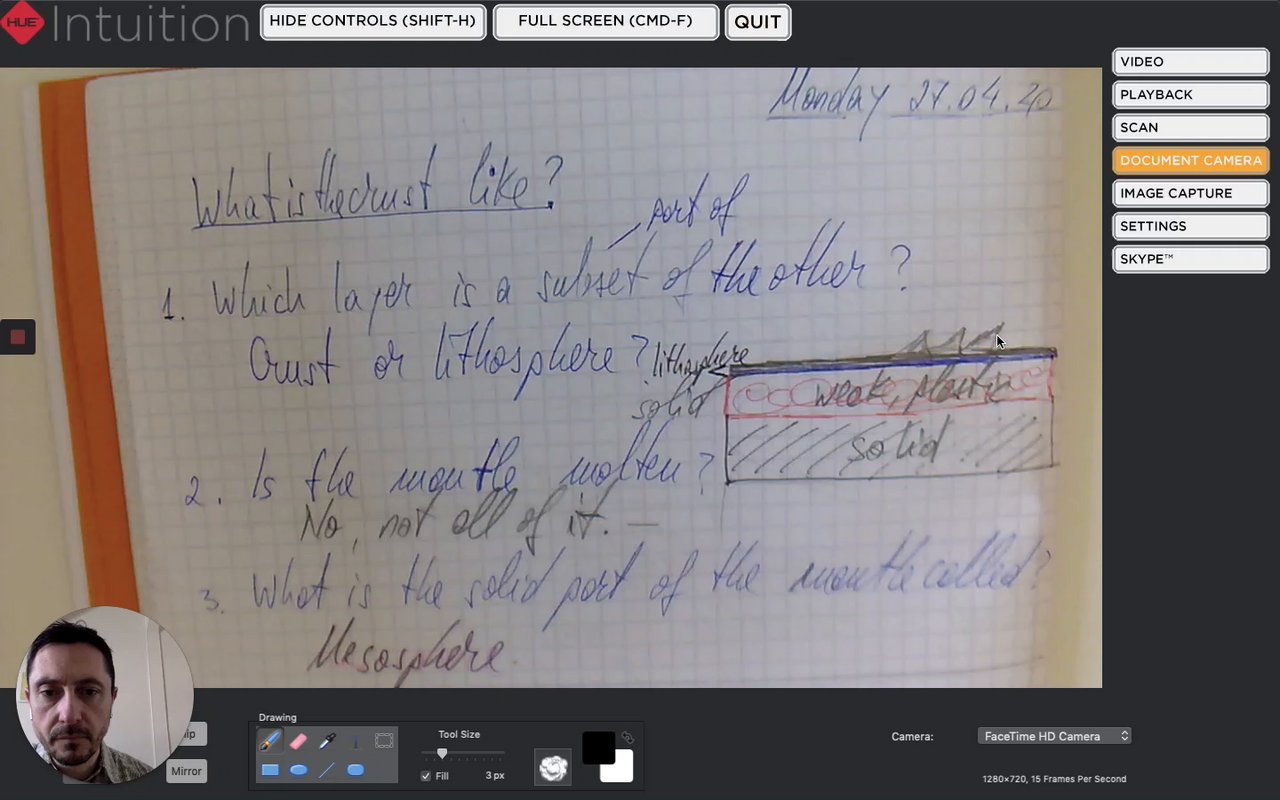 HUE Intuition
HIDE CONTROLS (SHIFT-H)
FULL SCREEN (CMD-F)
QUIT
VIDEO
PLAYBACK
SCAN
DOCUMENT CAMERA
IMAGE CAPTURE
SETTINGS
SKYPE™
Monday 27.04.20
What is the crust like?
part of
1. Which layer is a subset of the other?
Crust or lithosphere?
lithosphere
solid
weak, plastic
solid
2. Is the mantle molten?
No, not all of it.
3. What is the solid part of the mantle called?
Mesosphere.
ip
Mirror
Drawing
Tool Size
Fill
3 px
Camera:
FaceTime HD Camera
1280×720, 15 Frames Per Second